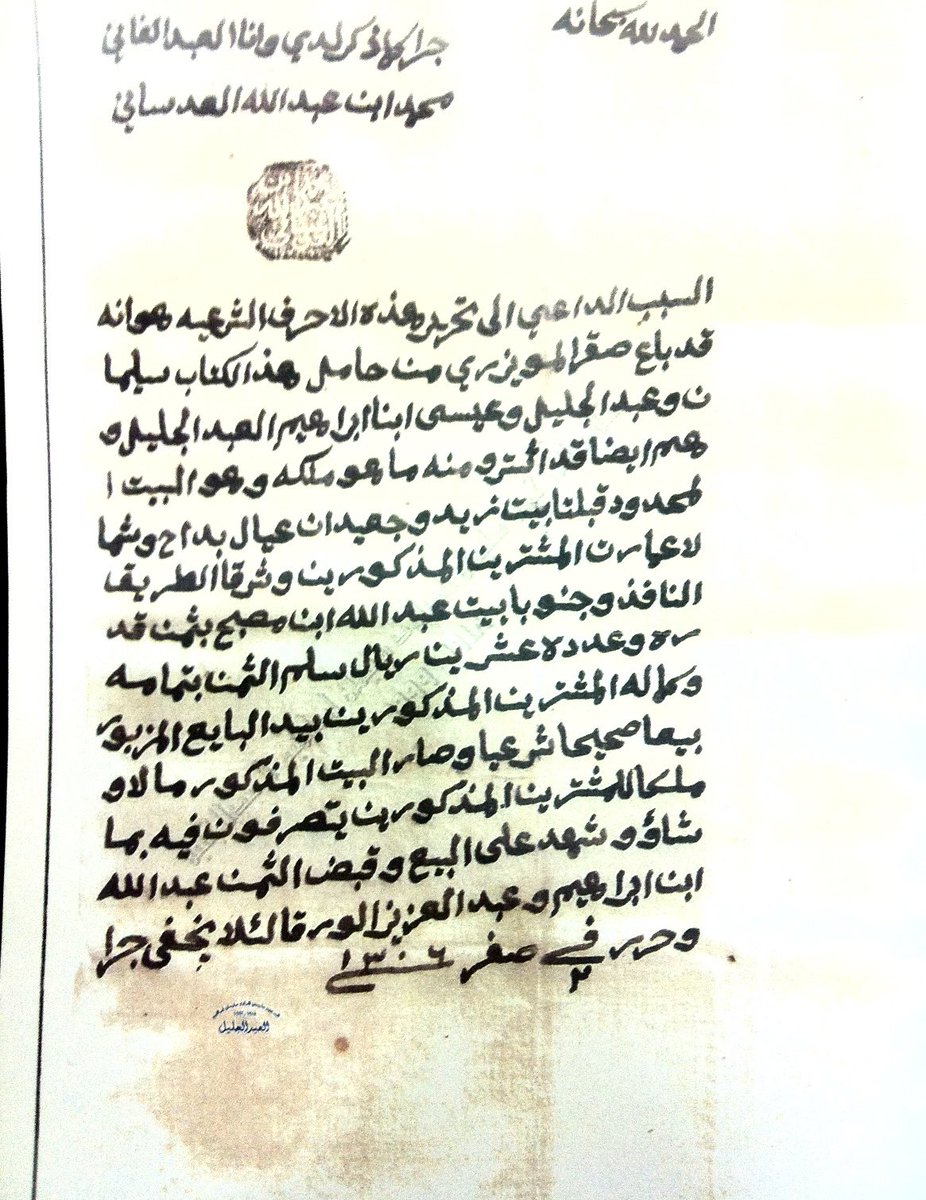 الحمد لله سبحانه
جرا كما ذكر لدي وانا العبد الفاني
محمد ابن عبد الله العدساني
السبب الداعي الى تحرير هذه الاحرف الشرعيه هو انه
قد باع صقر المويزري من حامل هذ الكتاب سليما
ن وعبد الجليل وعيسى ابنا ابراهيم العبد الجليل و
هم ايضا قد اشترو منه ما هو ملكه وهو البيت ا
لمحدود قبلتا بيت زيد وجعيدان عيال بداح وشما
لا عمارت المشترين المذكورين وشرقا الطريق
النافذ وجنوبا بيت عبد الله ابن مصبح بثمن قد
ره وعدده عشرين ريال سلم الثمن بتمامه
وكماله المشترين المذكورين بيد البايع المزبور
بيعا صحيحا شرعيا وصار البيت المذكور مالا و
ملكا للمشترين المذكورين يتصرفون فيه بما
شاؤو وشهد على البيع وقبض الثمن عبد الله
ابن ابراهيم وعبد العزيز الورقا لئلا يخفى جرا
وحرر في ٢ صفر ١٣٠٦
العبدالجليل